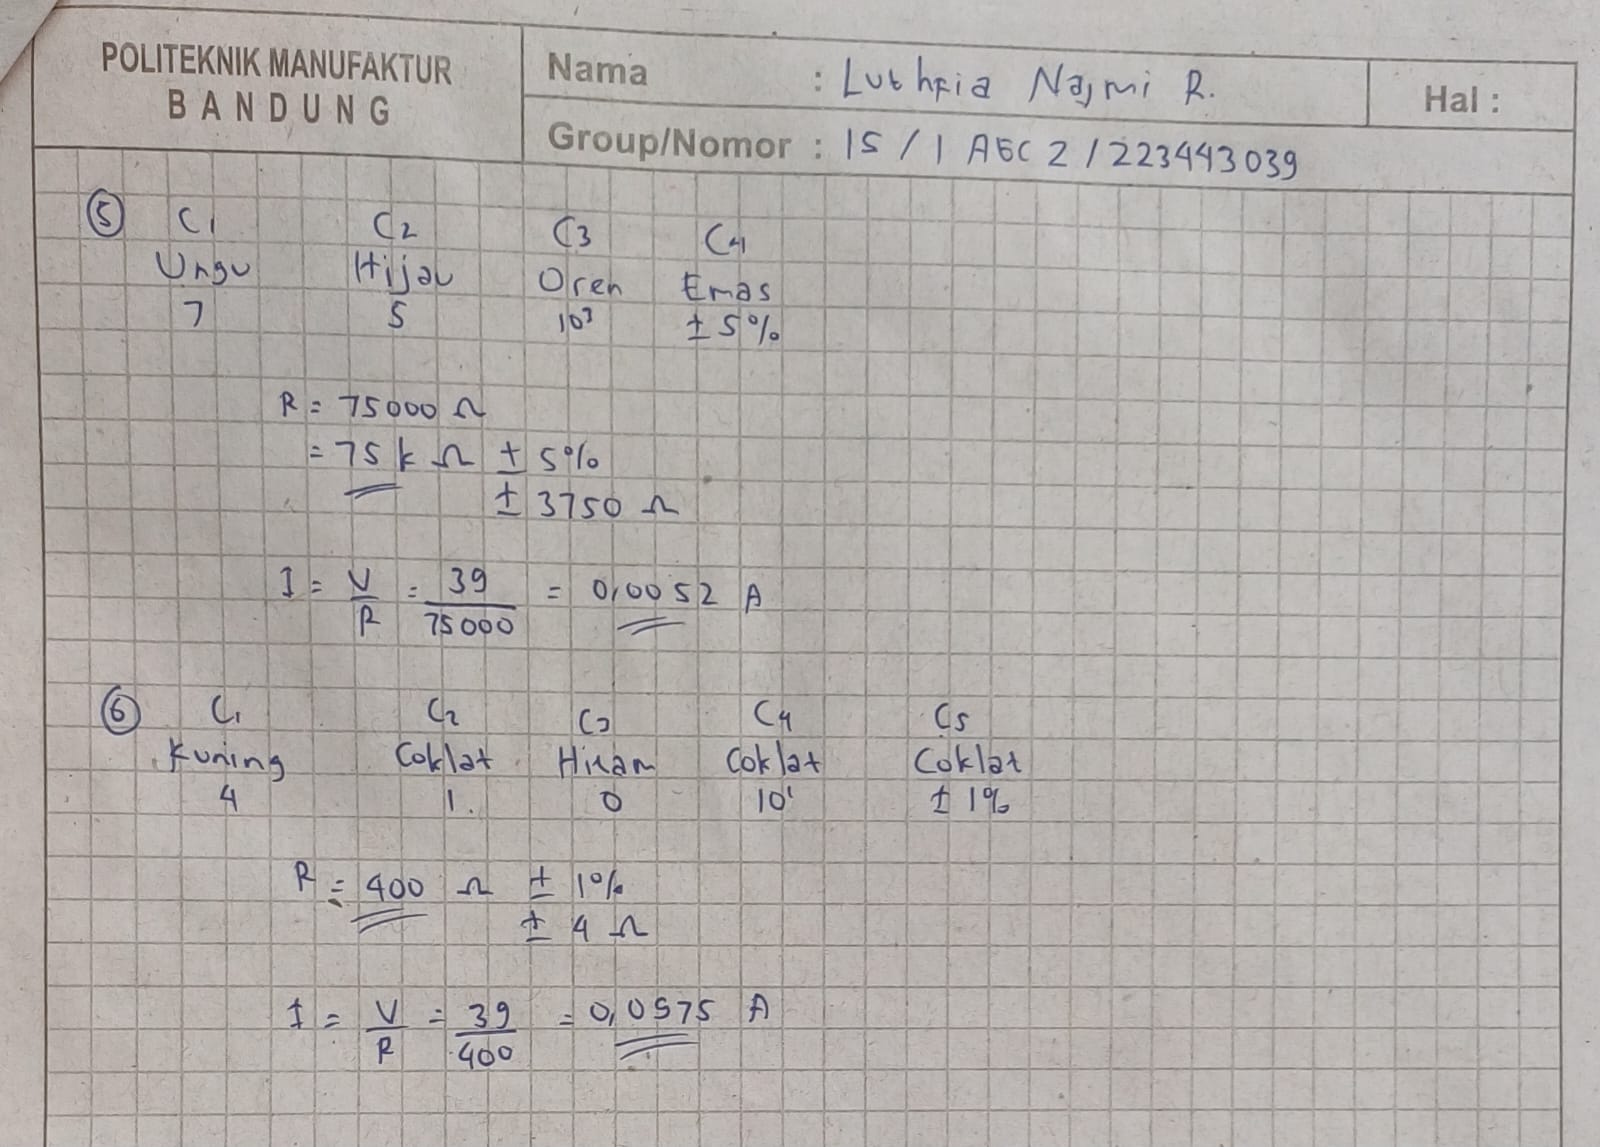 POLITEKNIK MANUFAKTUR
BANDUNG
Nama : Luthfia Najmi R.
Hal :
Group/Nomor : 15 / 1 AEC 2 / 223443039
5 C1 C2 C3 C4
Ungu Hijau Oren Emas
7 5 10³ ± 5%
R = 75000 Ω
= 75 k Ω ± 5%
± 3750 Ω
I = V/R = 39/75000 = 0,0052 A
6 C1 C2 C3 C4 C5
Kuning Coklat Hitam Coklat Coklat
4 1. 0 10¹ ± 1%
R = 400 Ω ± 1%
± 4 Ω
I = V/R = 39/400 = 0,0575 A